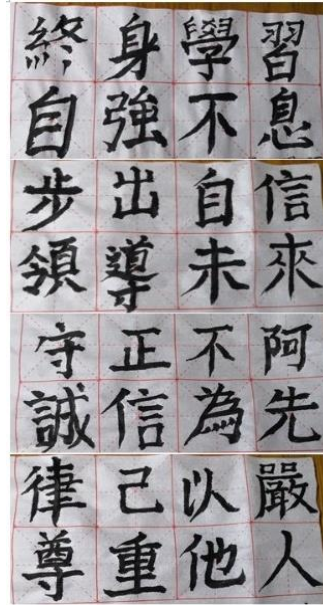 終身學習
自強不息
步出自信
領導未來
守正不阿
誠信為先
律己以嚴
尊重他人